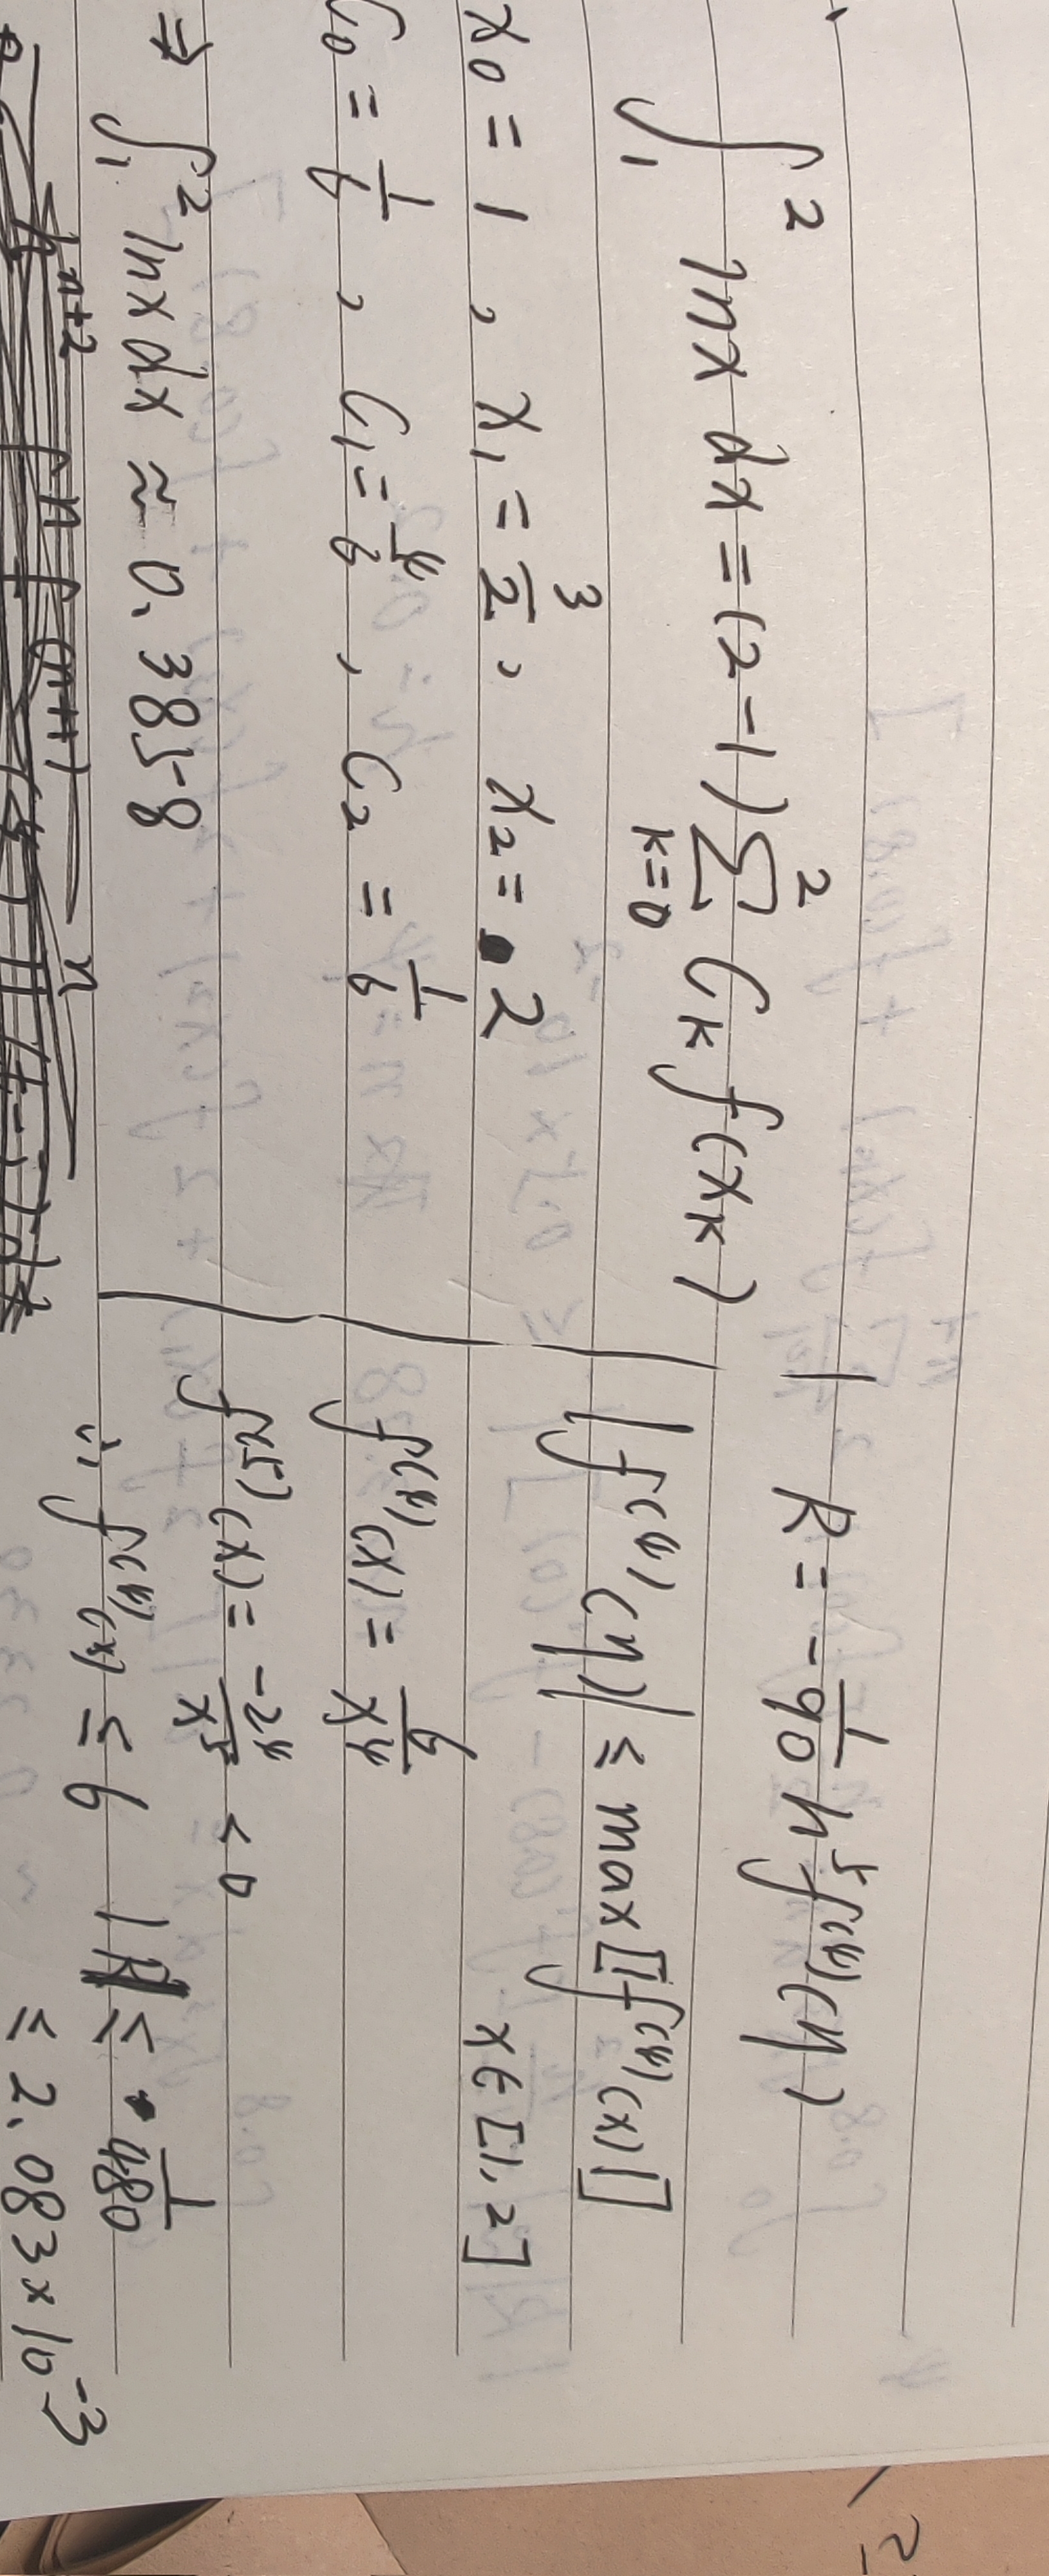 ∫₁² lnx dx = (2-1) ∑_{k=0}^{2} C_k f(x_k)
x₀ = 1 , x₁ = 3/2 , x₂ = 2
C₀ = 1/6 , C₁ = 4/6 , C₂ = 1/6
⇒ ∫₁² lnx dx ≈ 0.3858
R = -1/90 h⁵ f⁽⁴⁾(η)
|f⁽⁴⁾(η)| ≤ max[|f⁽⁴⁾(x)|]
x∈[1,2]
f⁽⁴⁾(x) = 6/x⁴
f⁽⁵⁾(x) = -24/x⁵ < 0
∴ f⁽⁴⁾(x) ≤ 6 |R| ≤ 1/480
≤ 2.083×10⁻³